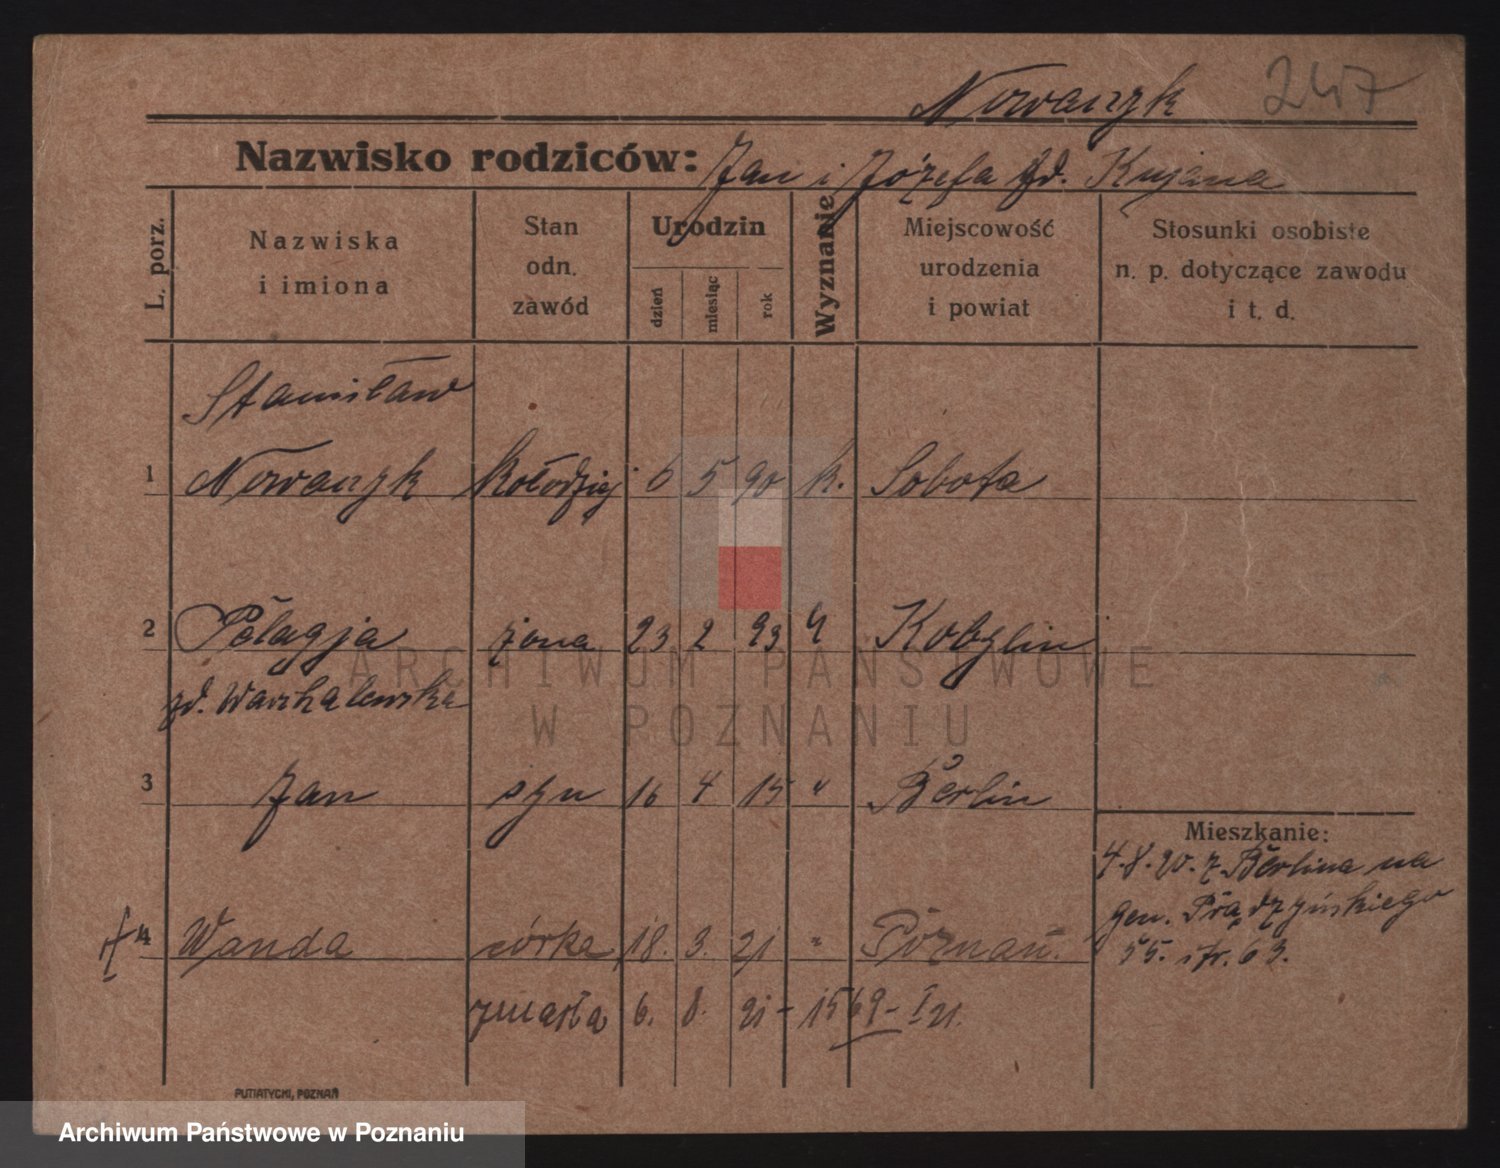 Nowaczyk 247
Nazwisko rodziców: Jan i Józefa zd. Kujawa
L. porz.
Nazwiska
i imiona
Stan
odn.
zawód
Urodzin
dzień
miesiąc
rok
Wyznanie
Miejscowość
urodzenia
i powiat
Stosunki osobiste
n. p. dotyczące zawodu
i t. d.
Stanisław
1 Nowaczyk kołodziej 6 5 90 k. Sobota
2 Pelagja żona 23 2 93 " Kobylin
zd. Warchalewska
3 Jan syn 16 4 15 " Berlin
Mieszkanie:
4.8.20. z Berlina na
gen. Prądzyńskiego
55. str. 63.
4 Wanda córka 18. 3. 21 " Poznań.
zmarła 6. 8. 21 - 1569 - I 21.
PUTIATYCKI, POZNAŃ
ARCHIWUM PAŃSTWOWE
W POZNANIU
Archiwum Państwowe w Poznaniu